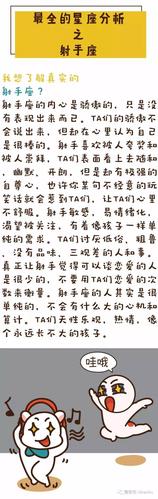 最全的星座分析
之
射手座
我想了解真实的
射手座？
射手座的内心是骄傲的，只是没
有表现出来而已。TA们的骄傲不
会说出来，但却在心里认为自己
是很棒的。射手喜欢被人夸赞和
被人崇拜，TA们表面看上去随和
、幽默、开朗，但是却有极强的
自尊心，也许你某句不经意的玩
笑话就会惹到TA们，让TA们心里
不舒服。射手敏感，易情绪化，
渴望被关注，有着像孩子一样单
纯的需求。TA们讨厌低俗，粗鲁
、没有品味，三观差的人和事，
真正让射手觉得可以谈恋爱的人
是很少的，不要用TA们恋爱的次
数来衡量。射手座的人其实是很
单纯的，不会有什么大的心机和
算计。TA们天性乐观，热情，像
个永远长不大的孩子。
哇哦